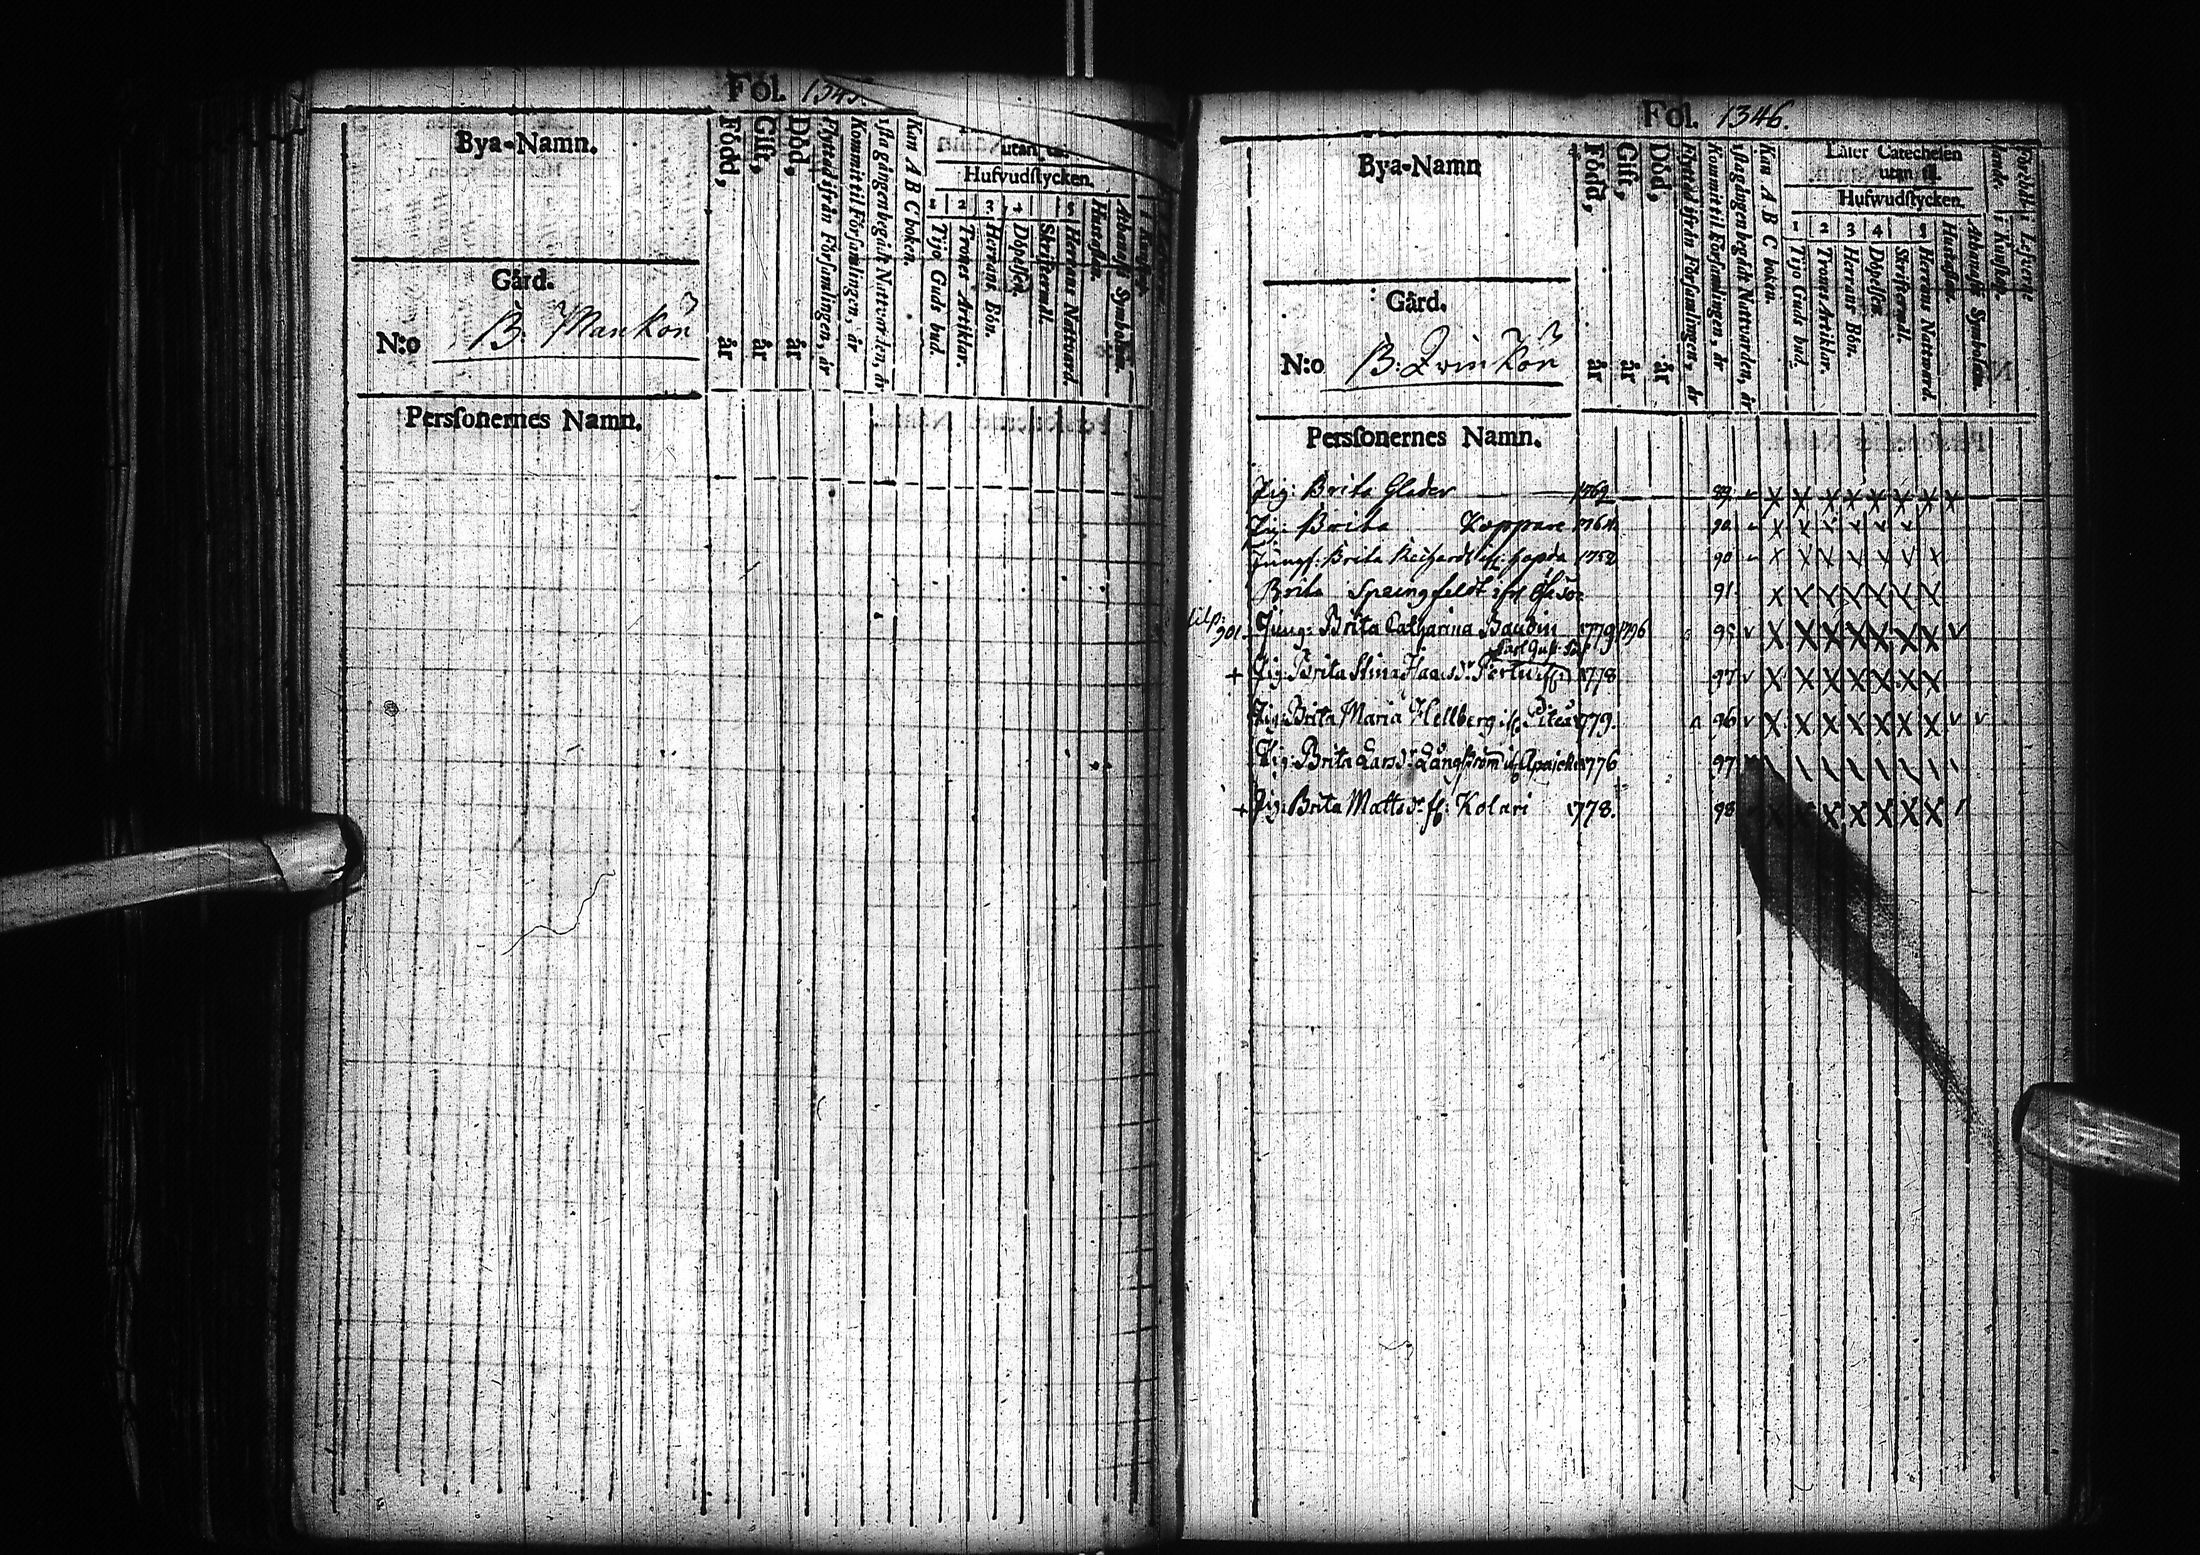 Fol. 1345.
Bya-Namn.
Född, år
Gift, år
Död, år
Flyttad ifrån Församlingen, år
Kommit til Församlingen, år
1sta gången begådt Nattvarden, år
Kan A B C boken.
utan til.
Hufvudstycken.
1 2 3 4 5
Tijo Guds bud.
Trones Artiklar.
Herrans Bön.
Döpelsen.
Skriftermål.
Herrans Nattvard.
Hustaflan.
Athanasii Symbolum.
Gård.
N:o B. Mankön
Persſonernes Namn.
Fol. 1346.
Bya-Namn
Född, år
Gift, år
Död, år
Flyttad ifrån Församlingen, år
Kommit til Församlingen, år
1sta gången begådt Nattvarden, år
Kan A B C boken.
Läser Catechesen
utan til.
Hufwudstycken.
1 2 3 4 5
Tijo Guds bud.
Trones Artiklar.
Herrans Bön.
Döpelsen.
Skriftermål.
Herrans Nattvard
Hustaflan.
Athanasii Symbolum.
Gård.
N:o B: Qvinkön
Persſonernes Namn.
Pig: Brita Glader 1769 89
Pig: Brita Koppare 1764. 90
Jungf: Brita 1752 90
Brita Springfeldt 91
901 Jung: Brita Catharina Baudin 1779 1796 95
+ Pig: Brita Stina 1778 97
Pig: Brita Maria Hellberg if. Piteå 1779. 96
Pig: Brita Larsdr Långström 1776 97
+ Pig: Brita Mattsdr fr: Kolari 1778. 98